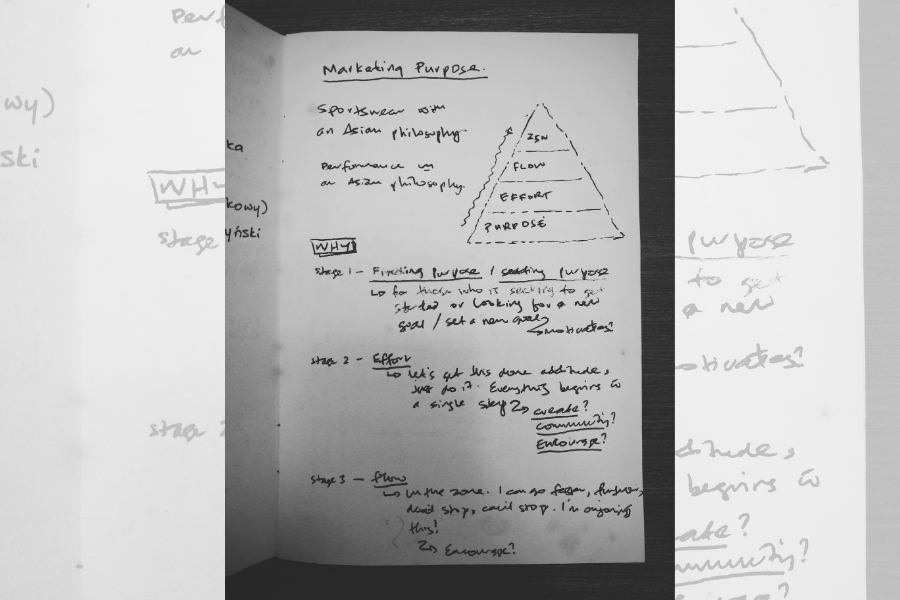 Marketing Purpose.
Sportswear with
an Asian philosophy.
Performance in
an Asian philosophy.
ZEN
FLOW
EFFORT
PURPOSE
WHY
Stage 1 - Finding purpose / seeking purpose
for those who is seeking to get
started or looking for a new
goal / set a new goal
motivates?
Stage 2 - Effort
Let's get this done additude,
just do it. Everything begins in
a single step
create?
community?
Encourage?
Stage 3 - flow
in the zone. I can go faster, further,
don't stop, can't stop. I'm enjoying
this!
Encourage?
ka
kowy)
yński